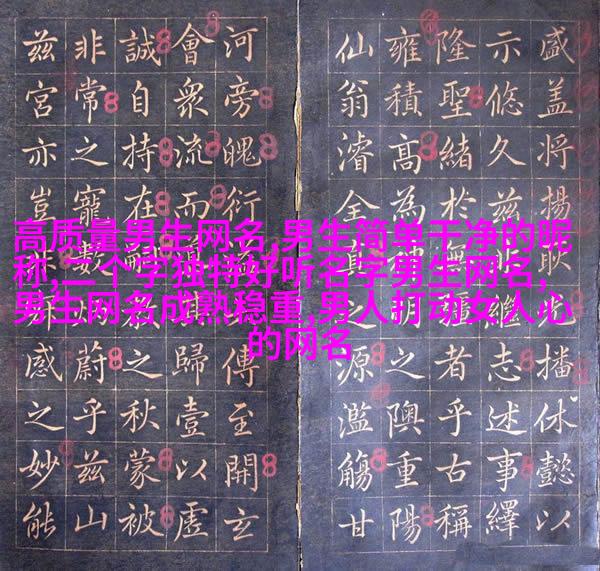 高质量男生网名,男生简单干净的昵
称,二个字独特好听名字男生网名,
男生网名成熟稳重,男人打动女人心
的网名
盛盖将揚耿光播休懿以
示悠久茲繼志述事繹
隆聖緒於無疆者乎古稱
雍積髙為之隩重陽
仙翁濬全真之源濫觴甘
河旁魄衍傳至開玄
會衆流而歸壹以虛
誠自持在嗣之秋蒙被
非常之寵數蔚乎茲山
茲宮亦豈感之妙能